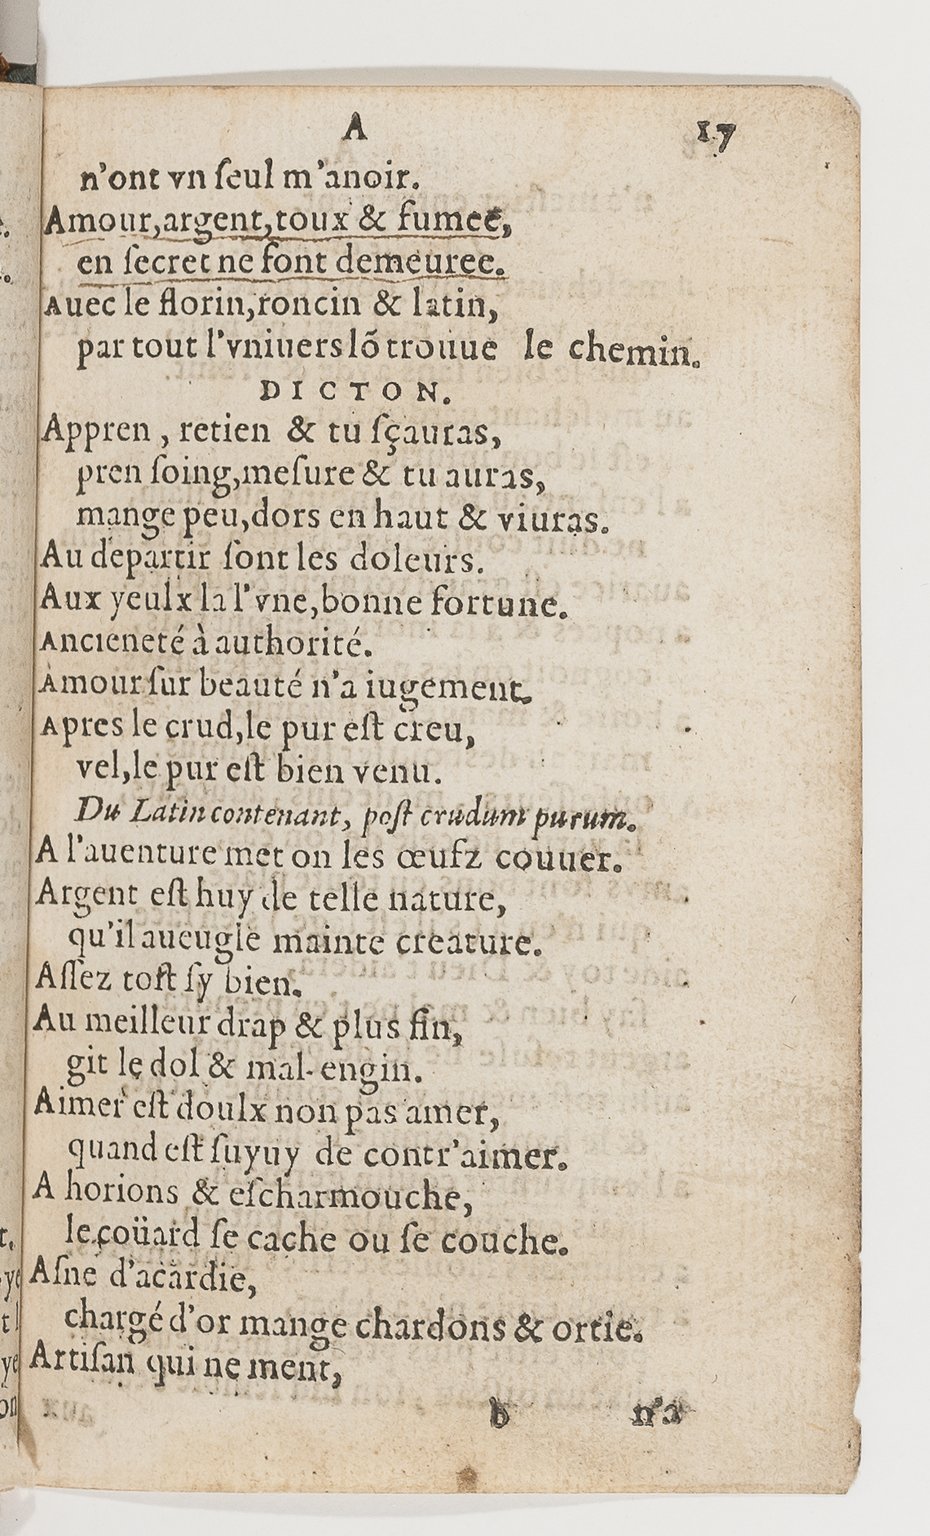 A 17
n'ont vn ſeul m'anoir.
Amour,argent,toux & fumee,
en ſecret ne font demeuree.
Auec le florin,roncin & latin,
par tout l'vniuers lõ trouue le chemin.
DICTON.
Appren , retien & tu ſçauras,
pren ſoing,meſure & tu auras,
mange peu,dors en haut & viuras.
Au departir ſont les doleurs.
Aux yeulx la l'vne,bonne fortune.
Ancieneté à authorité.
Amour ſur beauté n'a iugement.
Apres le crud,le pur eſt creu,
vel,le pur eſt bien venu.
Du Latin contenant, poſt crudum purum.
A l'auenture met on les œufz couuer.
Argent eſt huy de telle nature,
qu'il aueugle mainte creature.
Aſſez toſt ſy bien.
Au meilleur drap & plus fin,
git le dol & mal-engin.
Aimer eſt doulx non pas amer,
quand eſt ſuyuy de contr'aimer.
A horions & eſcharmouche,
le coüard ſe cache ou ſe couche.
Aſne d'acardie,
chargé d'or mange chardons & ortie.
Artiſan qui ne ment,
b n'a